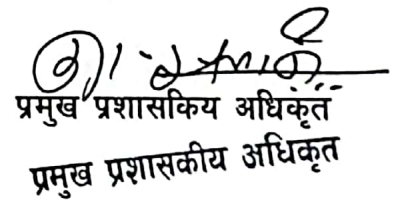 प्रमुख प्रशासकिय अधिकृत
प्रमुख प्रशासकीय अधिकृत